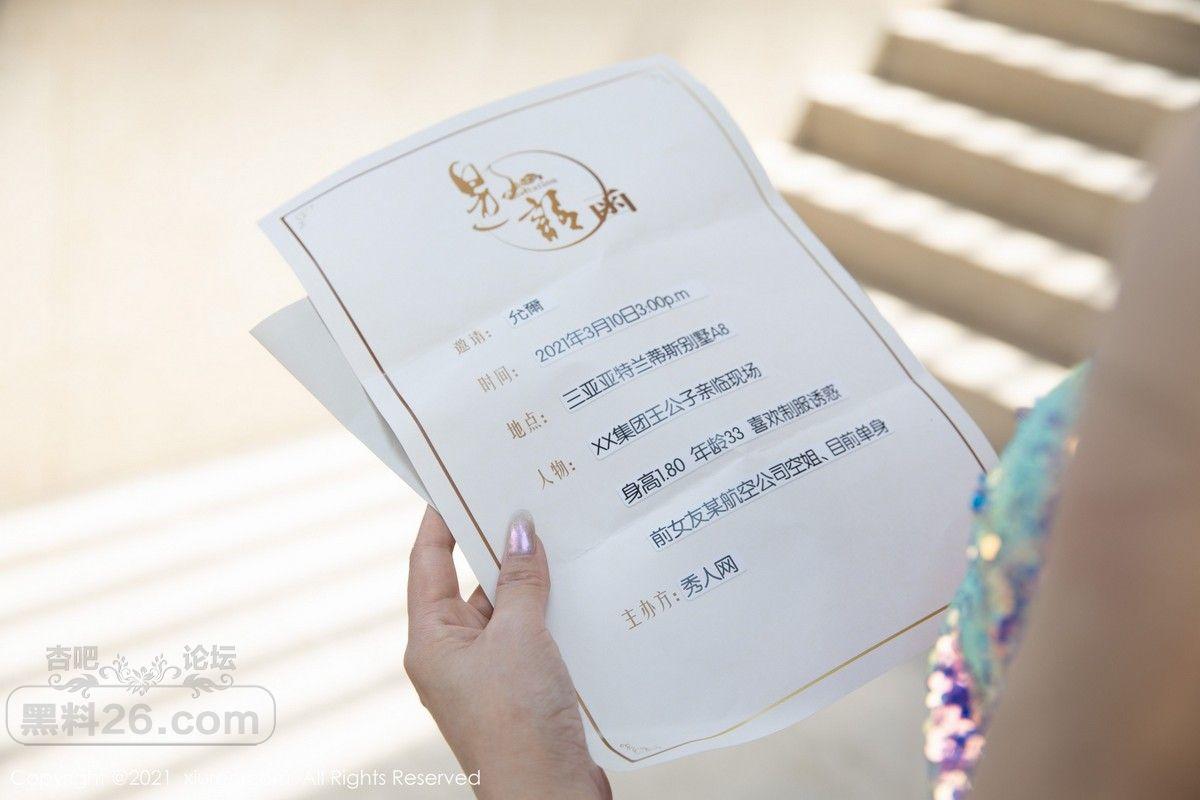 邀請函
邀请: 允爾
时间: 2021年3月10日3:00p.m
地点: 三亚亚特兰蒂斯别墅A8
人物: XX集团王公子亲临现场
身高1.80 年龄33 喜欢制服诱惑
前女友某航空公司空姐、目前单身
主办方: 秀人网
杏吧 论坛
黑料26.com
Copyright ©2021 All Rights Reserved